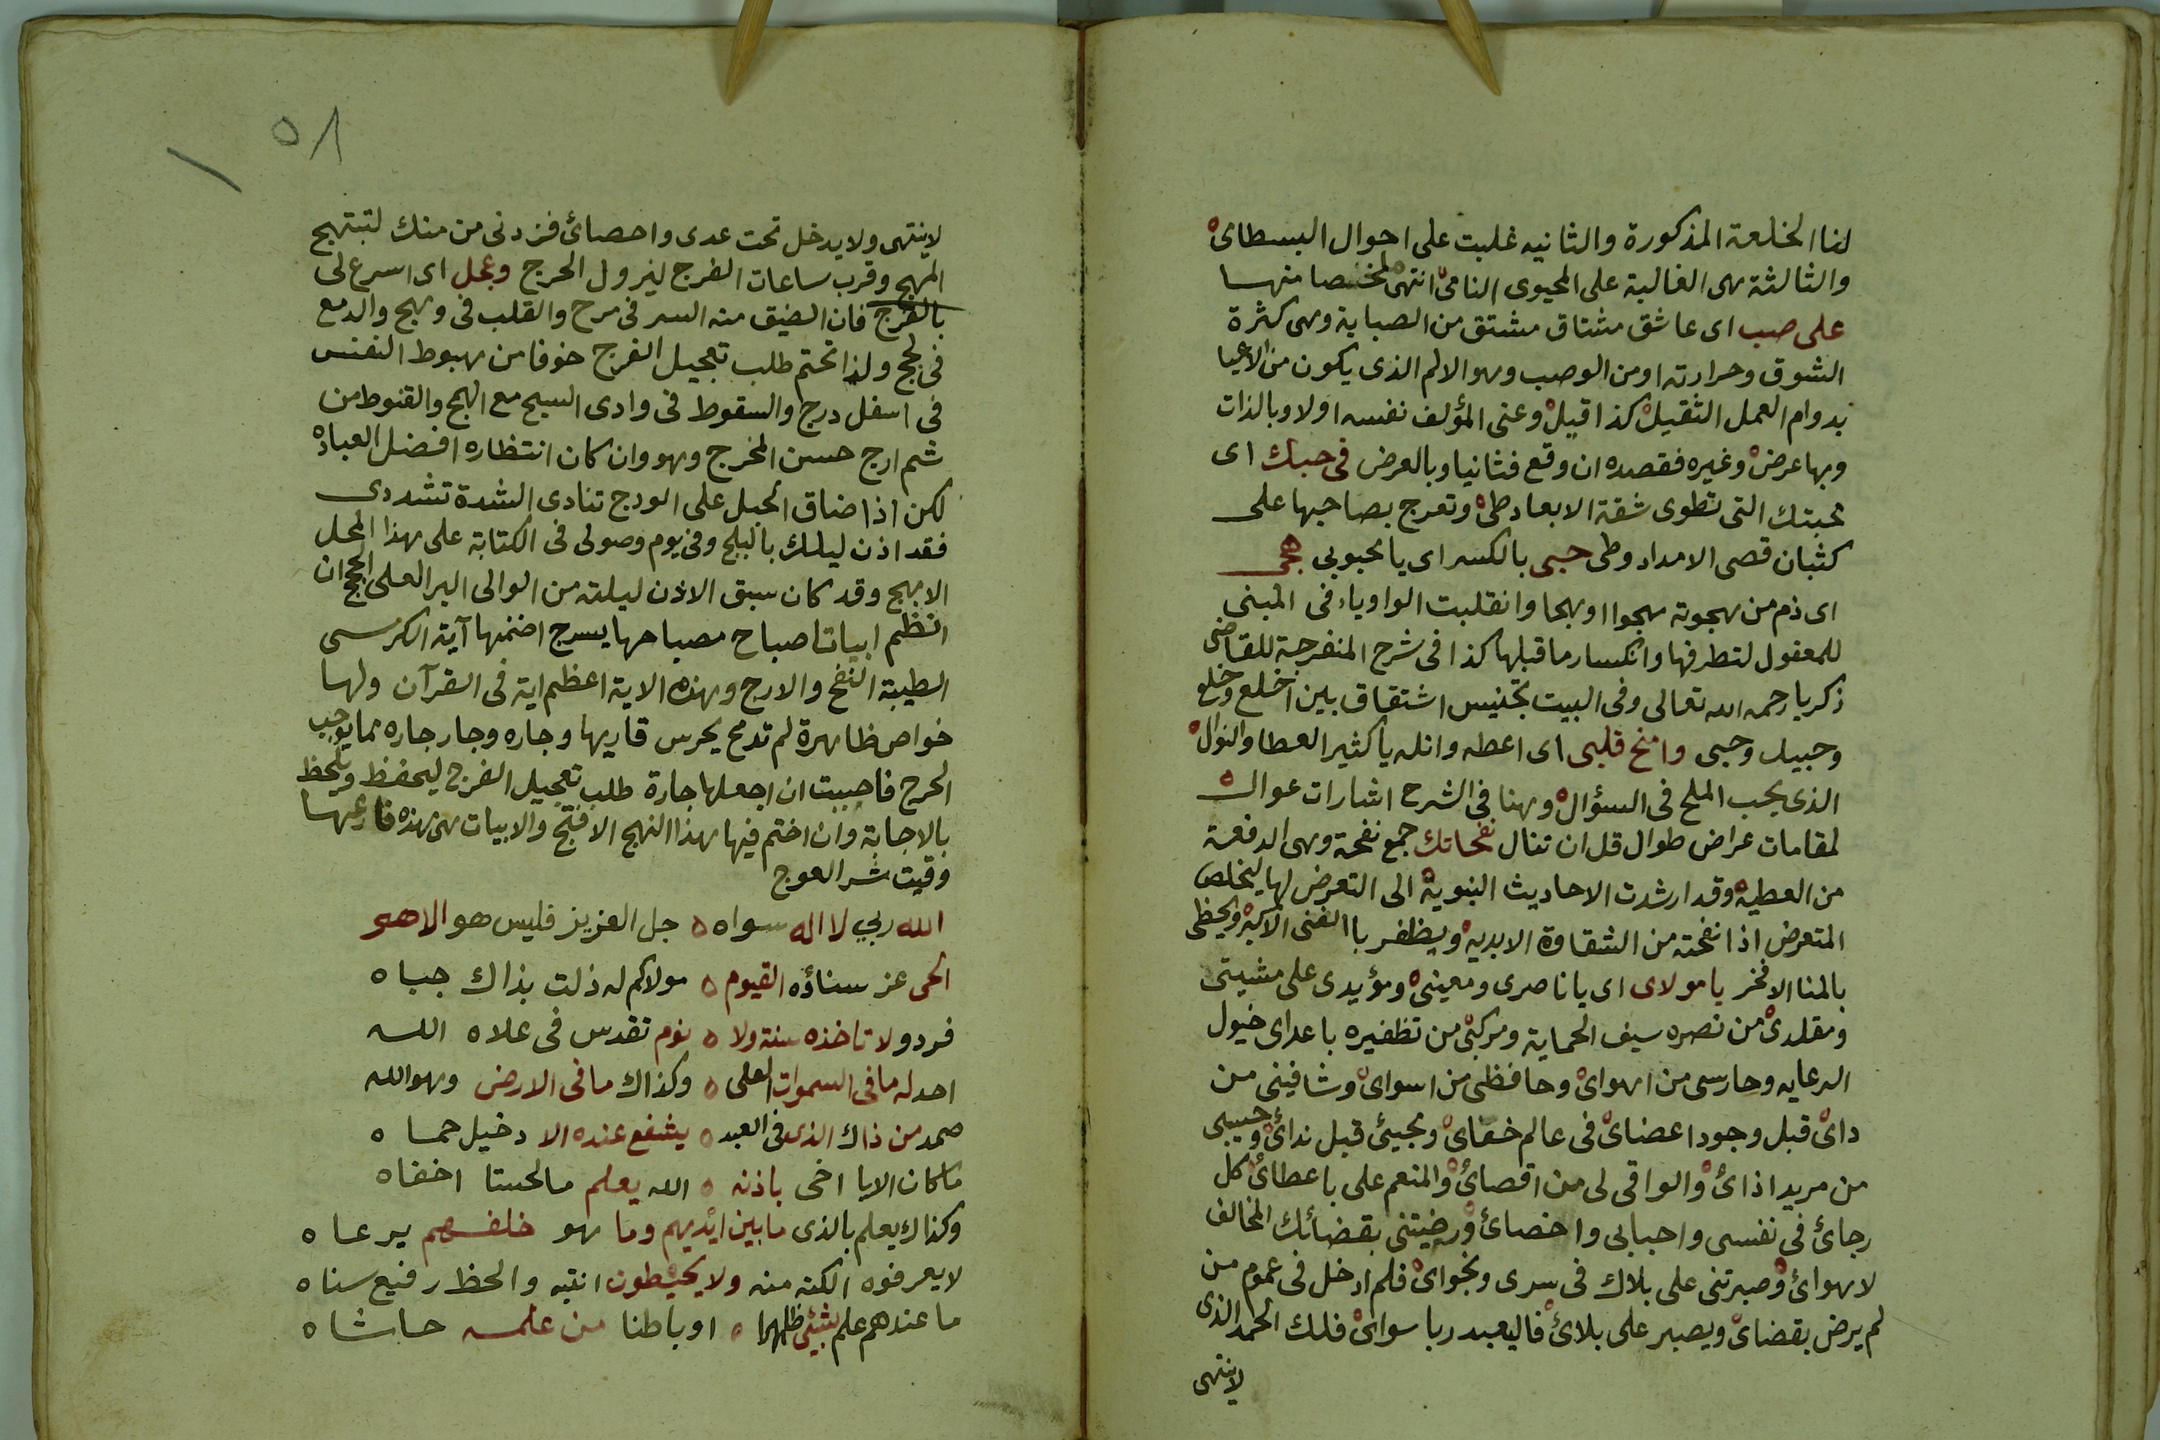 لنا الخلعة المذكورة والثانيه غلبت على احوال البسطاى
والثالثة هى الغالبة على المحيوى النامى انتهى ملخصا منها
على صب اى عاشق مشتاق مشتق من الصبابة وهى كثرة
الشوق وحرارته او من الوصب وهو الالم الذى يكون من الاعيا
بدوام العمل الثقيل كذا قيل وعنى المؤلف نفسه اولا وبالذات
وبها عرض وغيره فقصده ان وقع فثانيا وبالعرض فى حبك اى
محبتك التى تطوى شقة الابعاد طى وتعرج بصاحبها على
كثبان قصى الامداد وطى حبى بالكسر اى يا محبوبى هجى
اى ذم من هجوته هجوا وهجا وانقلبت الواو ياء فى المبنى
للمعفول لتطرفها وانكسار ما قبلها كذا فى شرح المنفرجة للقاضى
زكريا رحمه الله تعالى وفى البيت تجنيس اشتقاق بين اخلع وخلع
وحبيك وحبى وامنح قلبى اى اعطه وانله يا كثير العطا والنوال
الذى يحب الملح فى السؤال وهنا فى الشرح اشارات عوال
لمقامات عراض طوال قل ان تنال نفحاتك جمع نفحة وهى الدفعة
من العطية وقد ارشدت الاحاديث النبوية الى التعرض لها ليخلص
المتعرض اذا نفحته من الشقاوة الابدية ويظفر با الغنى الاكبر ويحظى
بالمنا الافخر يا مولاى اى يا ناصرى ومعينى ومؤيدى على مشيتى
ومقلدى من نصره سيف الحماية ومركبى من تظفيره باعداى خيول
الرعايه وحارسى من اهواى وحافظى من اسواى وشافينى من
داى قبل وجود اعضاى فى عالم خفاى ومجيئ قبل نداى وحبيبى
من مريد اذائ والواقى لى من اقصائ والمنعم على باعطائ كل
رجائ فى نفسى واحبابى واخصائ ورضيتنى بقضائك المخالف
لاهوائ وصبرتنى على بلاك فى سرى ونجواى فلم ادخل فى عموم من
لم يرض بقضاى ويصبر على بلائ فاليعبد ربا سواى فلك الحمد الذى
لاينتهى
٥١
لاينتهى ولا يدخل تحت عدى واحصائ فزدنى من منك لتبتهج
المهج وقرب ساعات الفرج ليزول الحرج وعجل اى اسرع لى
بالفرج فان الضيق منه السر فى مرج والقلب فى وهج والدمع
فى لجج ولذا تحتم طلب تعجيل الفرج خوفا من هبوط النفس
فى اسفل درج والسقوط فى وادى السيح مع الهمج والقنوط من
شم ارج حسن المخرج وهو وان كان انتظاره افضل العباده
لكن اذا ضاق الحبل على الودج تنادى الشدة تشددى
فقد اذن ليلك بالبلج وفى يوم وصولى فى الكتابة على هذا المحل
الابهج وقد كان سبق الاذن ليلته من الوالى البر العلى الحجج ان
انظم ابياتا صباح مصباحها يسرج اضمنها آية الكرسى
الطيبة النفح والارج وهذه الاية اعظم اية فى القرآن ولها
خواص ظاهرة لم تدمج يحرس قاريها وجاره وجار جاره مما يوجب
الحرج فاحببت ان اجعلها جارة طلب تعجيل الفرج ليحفظ ويلحظ
بالاجابة وان اختم فيها هذا النهج الافتح والابيات هى هذه فارعها
وقيت شر العوج
الله ربي لا اله سواه ه جل العزيز فليس هو الا هو
الحى عز سناؤه القيوم ه مولا كم له ذلت بذاك جباه
فرد ولا تاخذه سنة ولا ه نوم تقدس فى علاه الله
احد له ما فى السموات العلى ه وكذاك ما فى الارض وهو الله
صمد من ذاك الذى فى العبد ه يشفع عنده الا دخيل حماه
ما كان الا يا اخى باذنه ه الله يعلم ما لحستا اخفاه
وكذاك يعلم بالذى ما بين ايديهم وما هو خلفهم يرعاه
لا يعرفوه الكنه منه ولا يحيطون انتبه والحظ رفيع سناه
ما عندهم علم بشئ ظاهرا ه او باطنا من علمه حاشاه